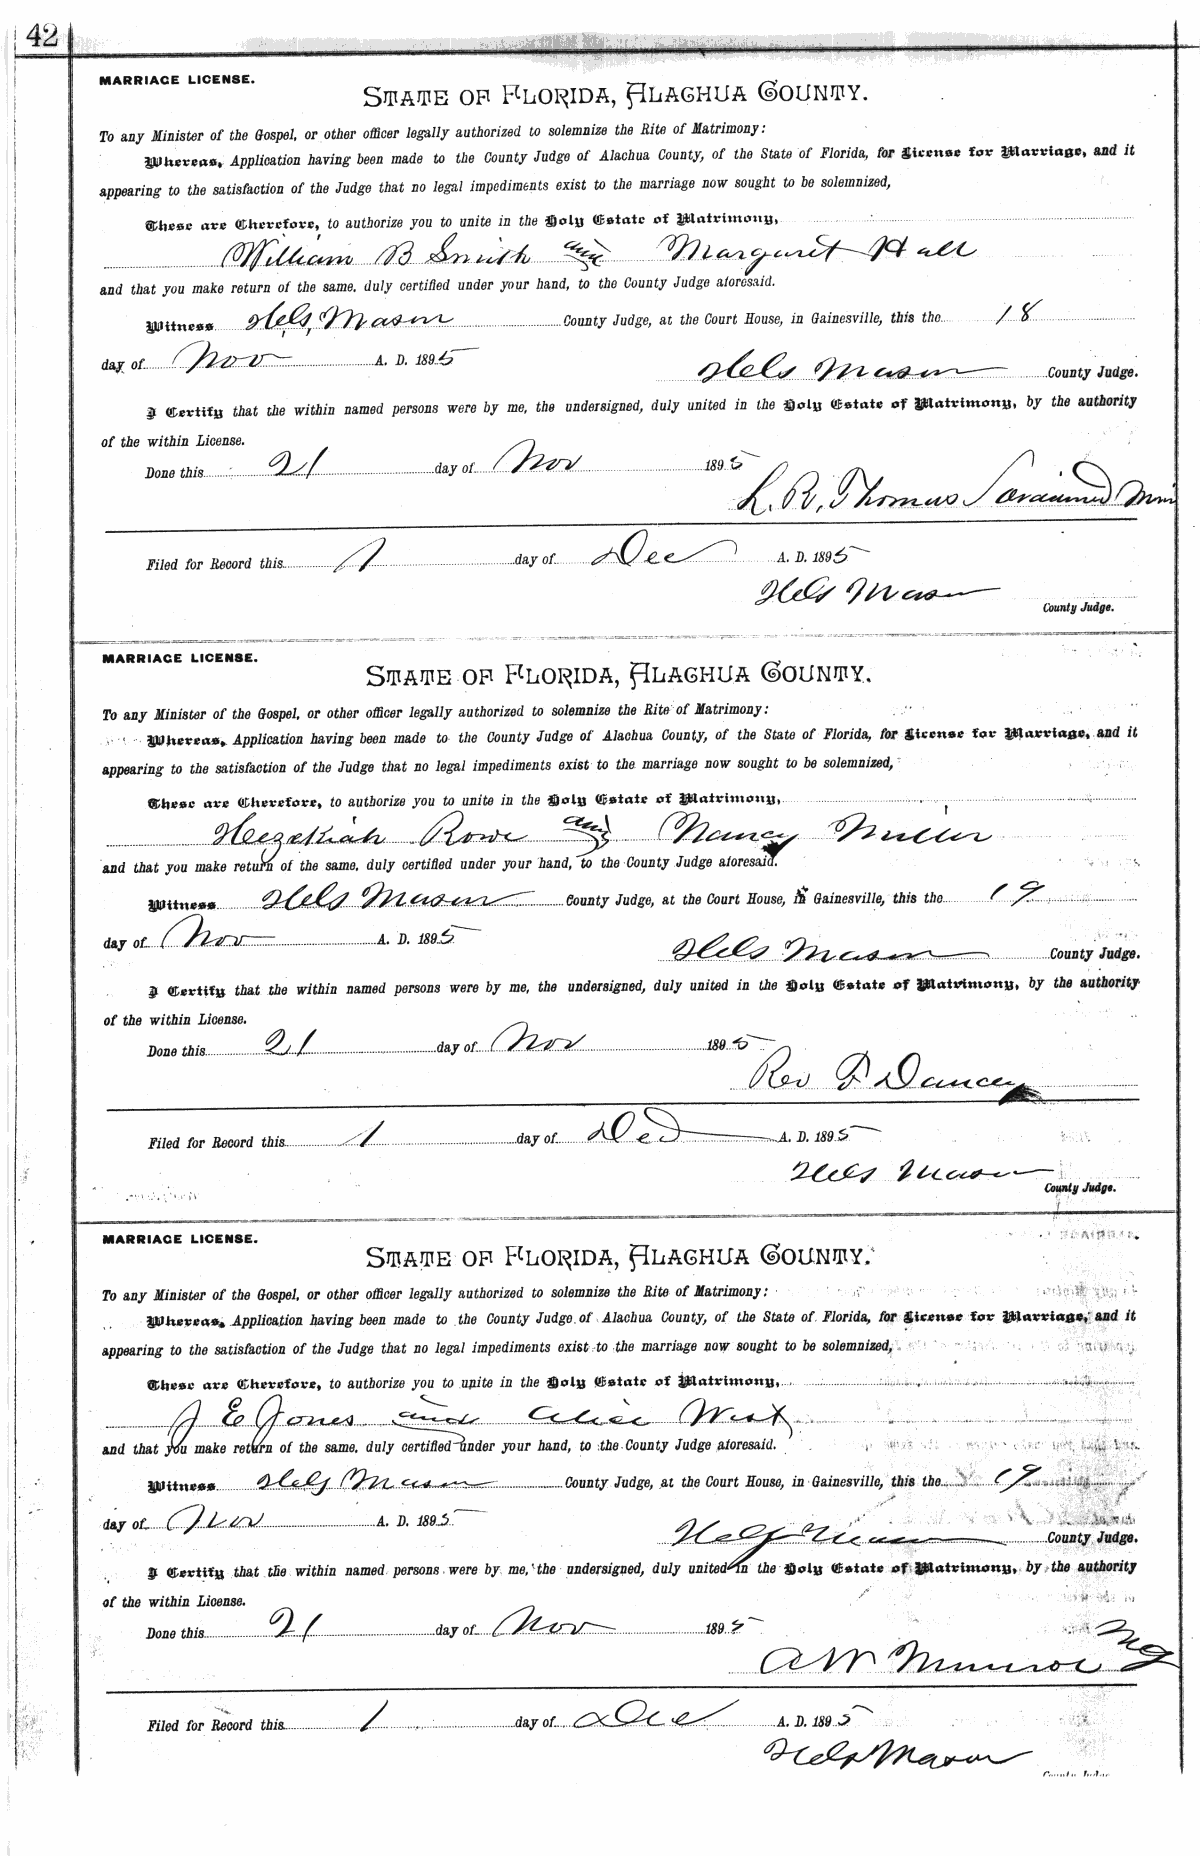 42
MARRIAGE LICENSE.
STATE OF FLORIDA, ALACHUA COUNTY.
To any Minister of the Gospel, or other officer legally authorized to solemnize the Rite of Matrimony:
Whereas, Application having been made to the County Judge of Alachua County, of the State of Florida, for License for Marriage, and it
appearing to the satisfaction of the Judge that no legal impediments exist to the marriage now sought to be solemnized,
These are Therefore, to authorize you to unite in the Holy Estate of Matrimony,
William B Smith and Margaret Hall
and that you make return of the same, duly certified under your hand, to the County Judge aforesaid.
Witness Mason County Judge, at the Court House, in Gainesville, this the 18
day of Nov A. D. 1895
Mason County Judge.
I Certify that the within named persons were by me, the undersigned, duly united in the Holy Estate of Matrimony, by the authority
of the within License.
Done this 21 day of Nov 1895
L. R. Thomas Min
Filed for Record this 1 day of Dec A. D. 1895
Mason
County Judge.
MARRIAGE LICENSE.
STATE OF FLORIDA, ALACHUA COUNTY.
To any Minister of the Gospel, or other officer legally authorized to solemnize the Rite of Matrimony:
Whereas, Application having been made to the County Judge of Alachua County, of the State of Florida, for License for Marriage, and it
appearing to the satisfaction of the Judge that no legal impediments exist to the marriage now sought to be solemnized,
These are Therefore, to authorize you to unite in the Holy Estate of Matrimony,
Hezekiah Rowe and Nancy Miller
and that you make return of the same, duly certified under your hand, to the County Judge aforesaid.
Witness Mason County Judge, at the Court House, in Gainesville, this the 19
day of Nov A. D. 1895
Mason County Judge.
I Certify that the within named persons were by me, the undersigned, duly united in the Holy Estate of Matrimony, by the authority
of the within License.
Done this 21 day of Nov 1895
Rev F Dancey
Filed for Record this 1 day of Dec A. D. 1895
Mason
County Judge.
MARRIAGE LICENSE.
STATE OF FLORIDA, ALACHUA COUNTY.
To any Minister of the Gospel, or other officer legally authorized to solemnize the Rite of Matrimony:
Whereas, Application having been made to the County Judge of Alachua County, of the State of Florida, for License for Marriage, and it
appearing to the satisfaction of the Judge that no legal impediments exist to the marriage now sought to be solemnized,
These are Therefore, to authorize you to unite in the Holy Estate of Matrimony,
J E Jones and Alice West
and that you make return of the same, duly certified under your hand, to the County Judge aforesaid.
Witness Mason County Judge, at the Court House, in Gainesville, this the 19
day of Nov A. D. 1895
Mason County Judge.
I Certify that the within named persons were by me, the undersigned, duly united in the Holy Estate of Matrimony, by the authority
of the within License.
Done this 21 day of Nov 1895
A W Munroe MG
Filed for Record this 1 day of Dec A. D. 1895
Mason
County Judge